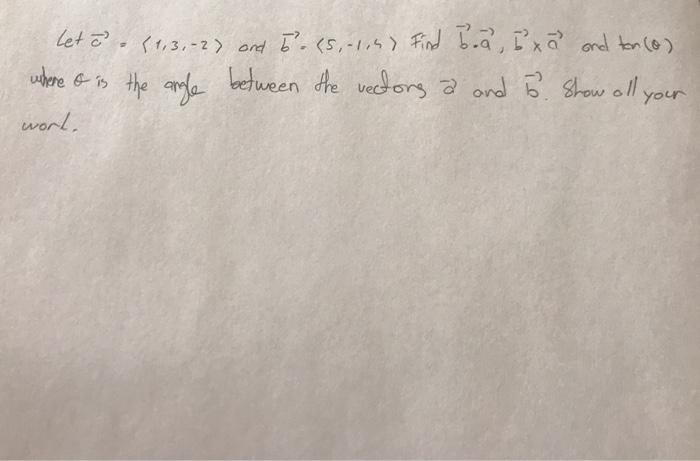 Let a⃗ = ⟨1, 3, -2⟩ and b⃗ = ⟨5, -1, 4⟩ Find b⃗·a⃗, b⃗×a⃗ and tan(θ)
where θ is the angle between the vectors a⃗ and b⃗. Show all your
work.